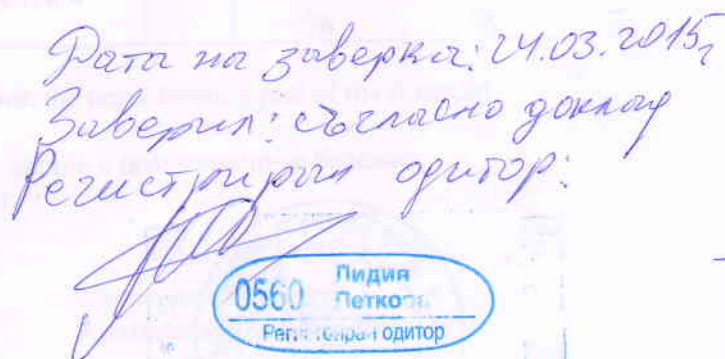 Дата на заверка: 24.03.2015г
Заверил: съгласно доклад
Регистриран одитор:
0560 Лидия
Петкова
Регистриран одитор